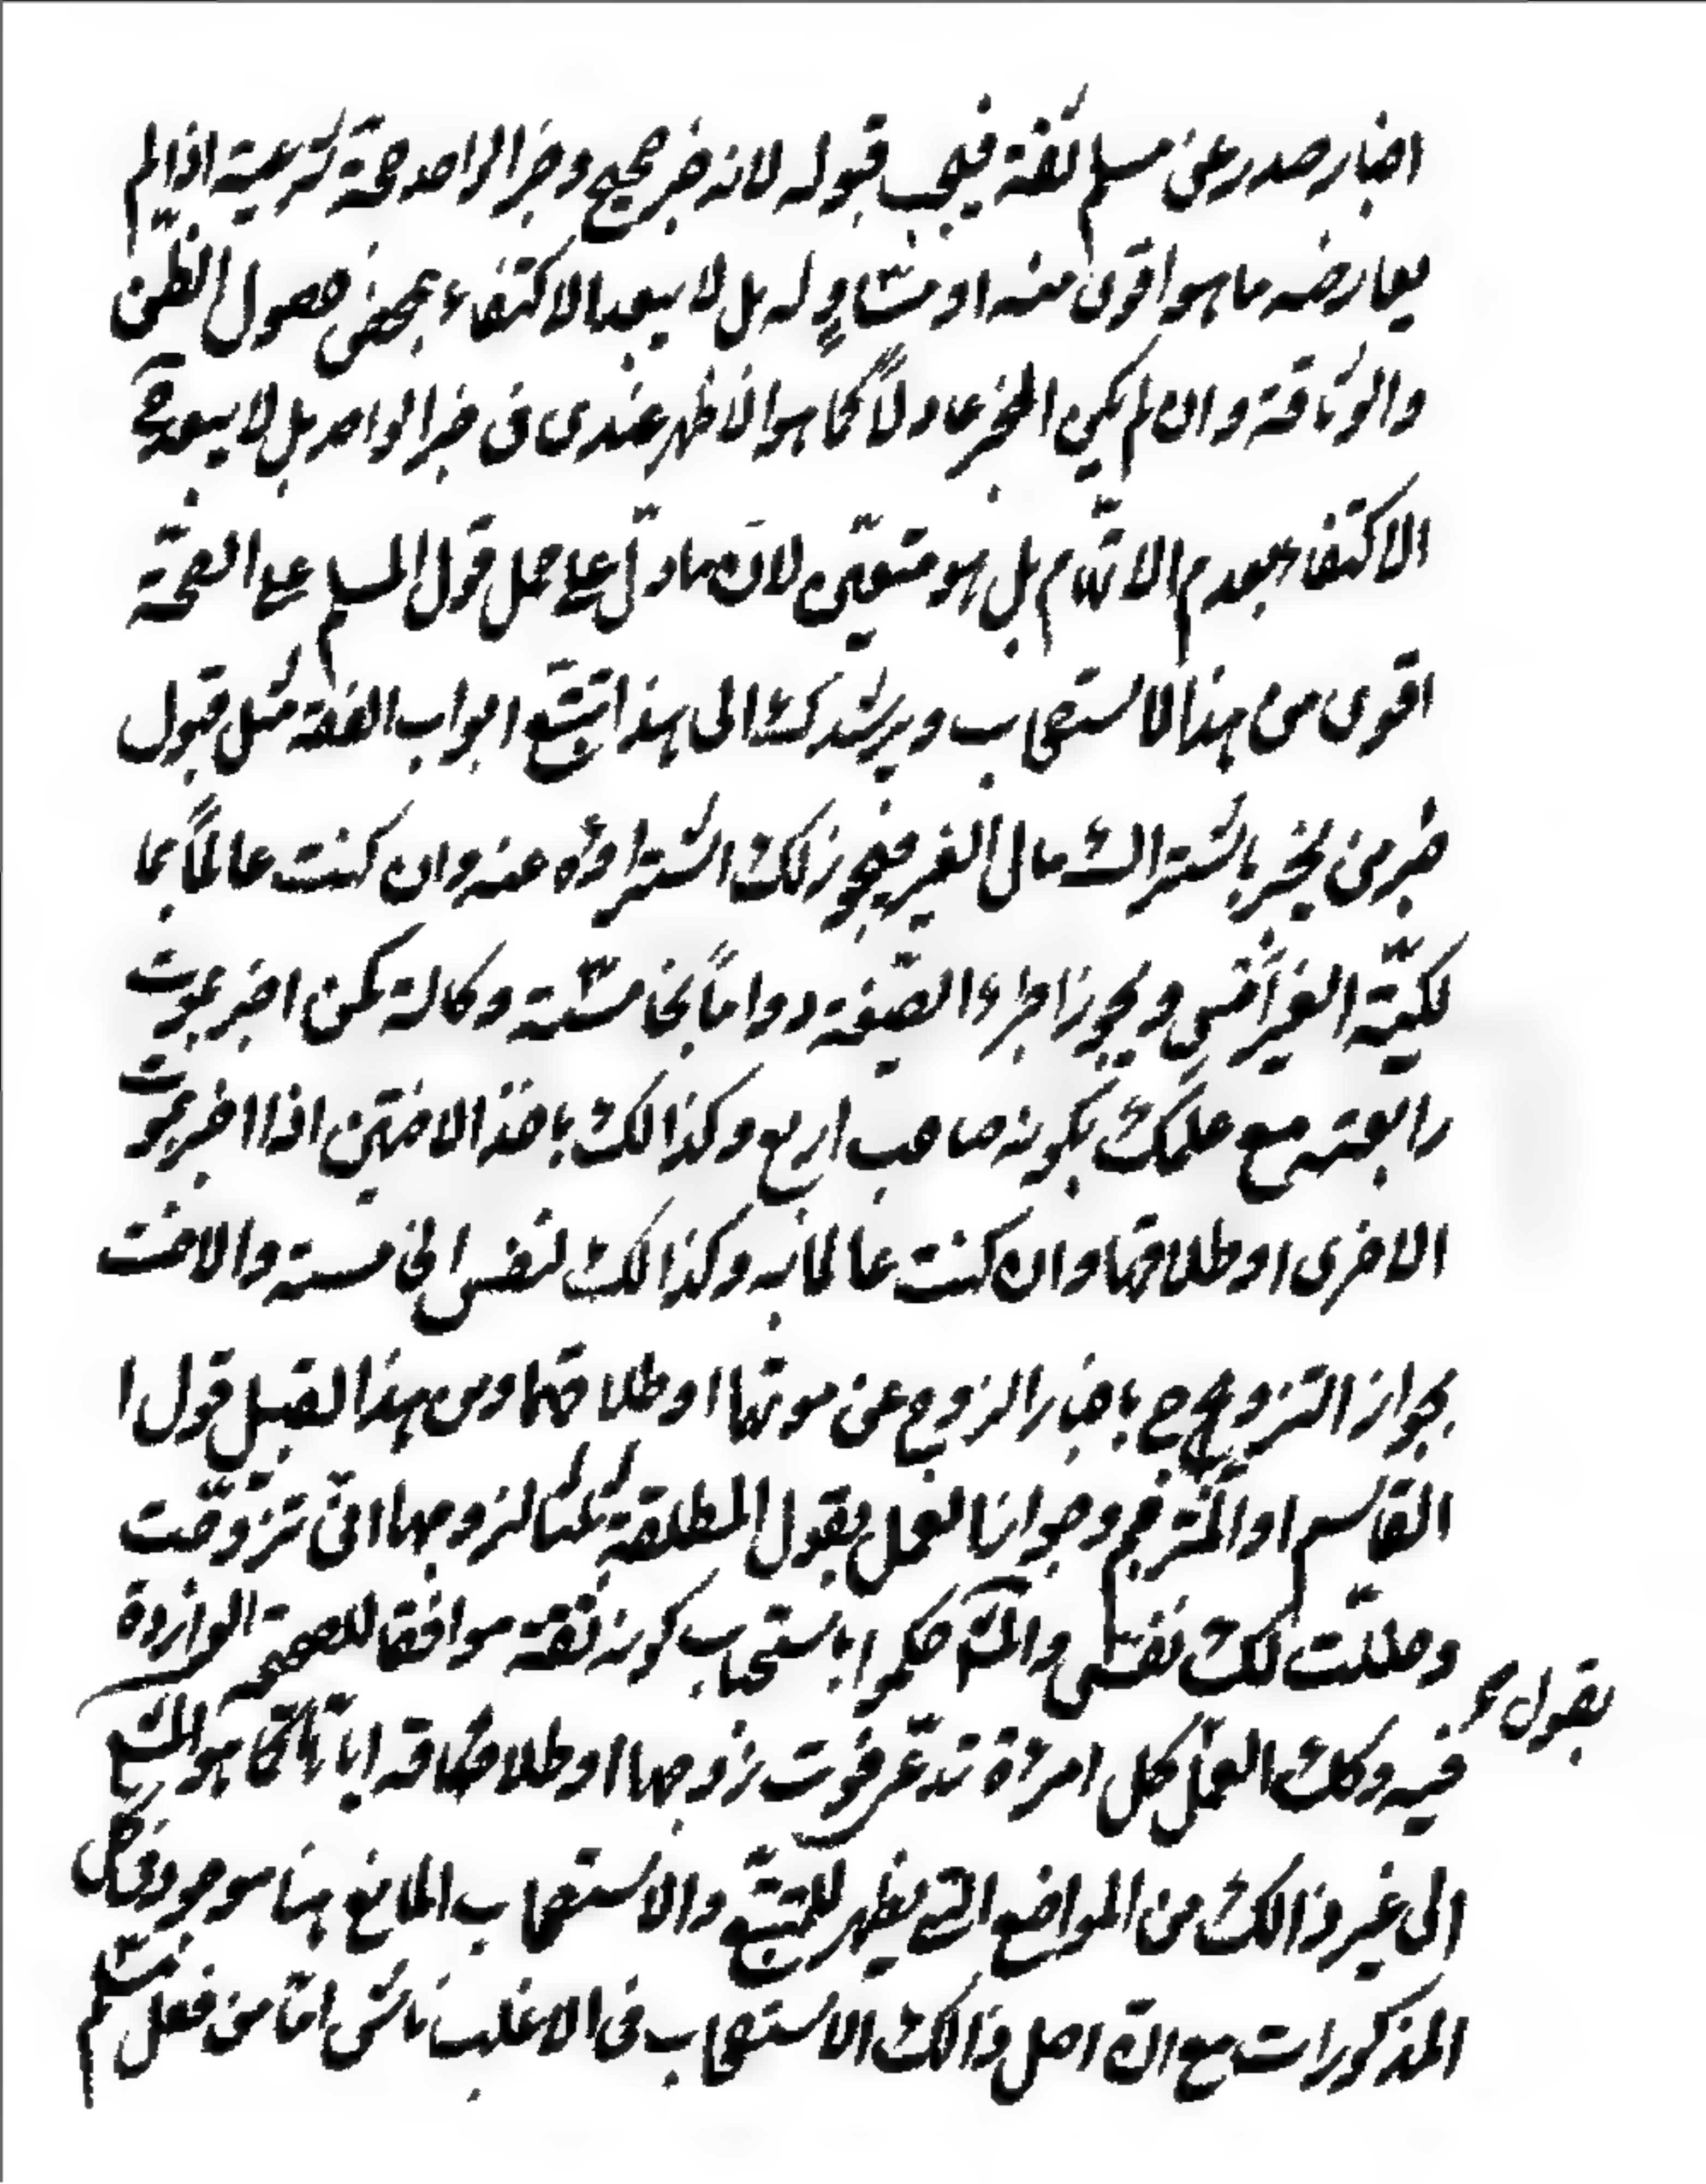 اخبار صدر عن مسلم ثقة فيجب قبوله لانه خبر صحيح وخبر الواحد حجة شرعية اذا لم
يعارضه ما هو اقوى منه او مساوٍ له بل لا يبعد الاكتفاء بمحض حصول الظن
والوثاقة وان لم يكن المخبر عادلاً كما هو الاظهر عندى فى خبر الواحد بل لا يبعد ح
الاكتفاء بعدم الاتهام بل هو متعيّن لان ما دلّ على حمل قول المسلم على الصحّة
اقوى من هذا الاستصحاب ويرشدك الى هذا تتبّع ابواب الفقه مثل قبول
خبر من يخبر باشتراك مال الغير فيجوز لك اشتراؤه عنه وان كنت عالماً بما
لكيّة الغير أمس ويجوز اجراء الصيّغة دواماً بخامسة وكالة لمن اخبر بموت
رابعته مع علمك بكونه صاحب اربع وكذالك باخذ الاختين اذا اخبر بموت
الاخرى او طلاقها وان كنت عالما به وكذالك لنفس الخامسة والاخت
بجواز التزويج ح باخبار الزوج عن موتها او طلاقها ومن هذا القبيل قول ا
القاسم او المترجم وجواز العمل بقول المطلقة ثلثا لزوجها انى تزوّجت
وحللت لك نفسى والكل حكموا باستحباب كونه ثقة موافقا للصحيحة الواردة
بقول
فيه وكك العمل كل امرئة تدّعى فوت زوجها او طلاقه اياها كما هو
الى غير ذالك من المواضع التى يظهر للمتتبّع والاستصحاب المانع هنا موجود فى كل
المذكورات مع انّ اصل ذالك الاستصحاب فى الاغلب ناش امّا من فعل مسلم